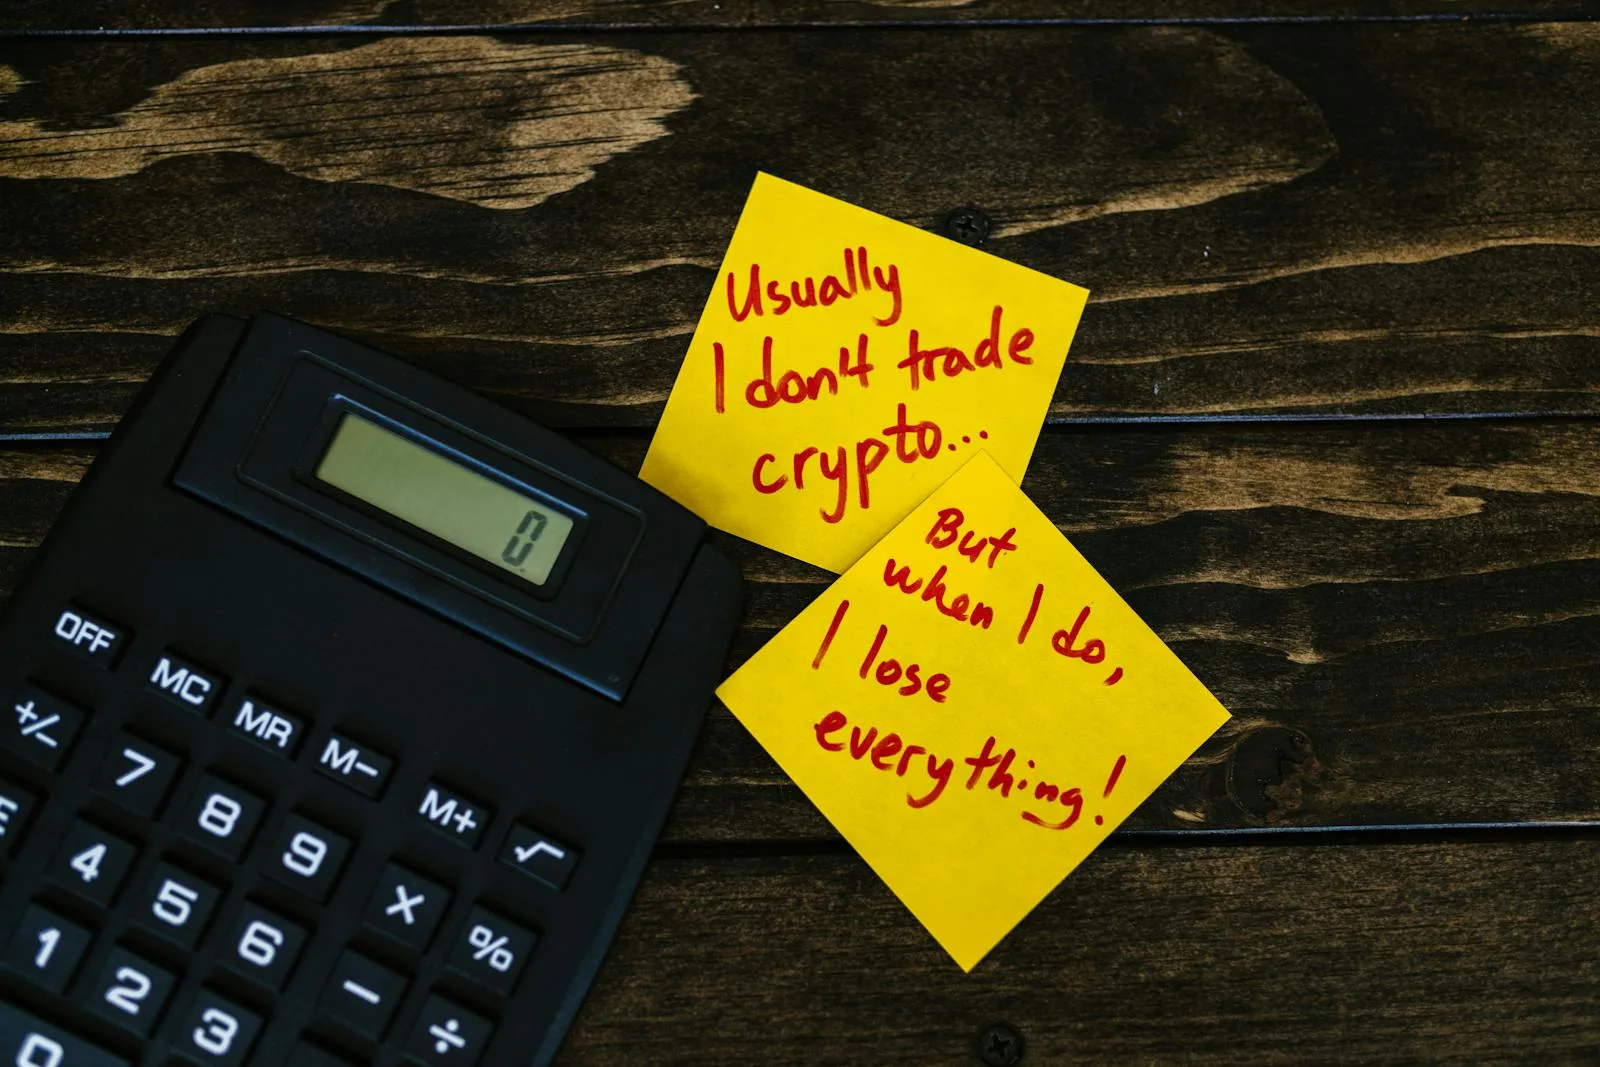 Usually
I don't trade
crypto...
But
when I do,
I lose
everything!
0.
OFF
MC
MR
M-
M+
√
+/-
7
8
9
X
%
4
5
6
-
÷
1
2
3
0